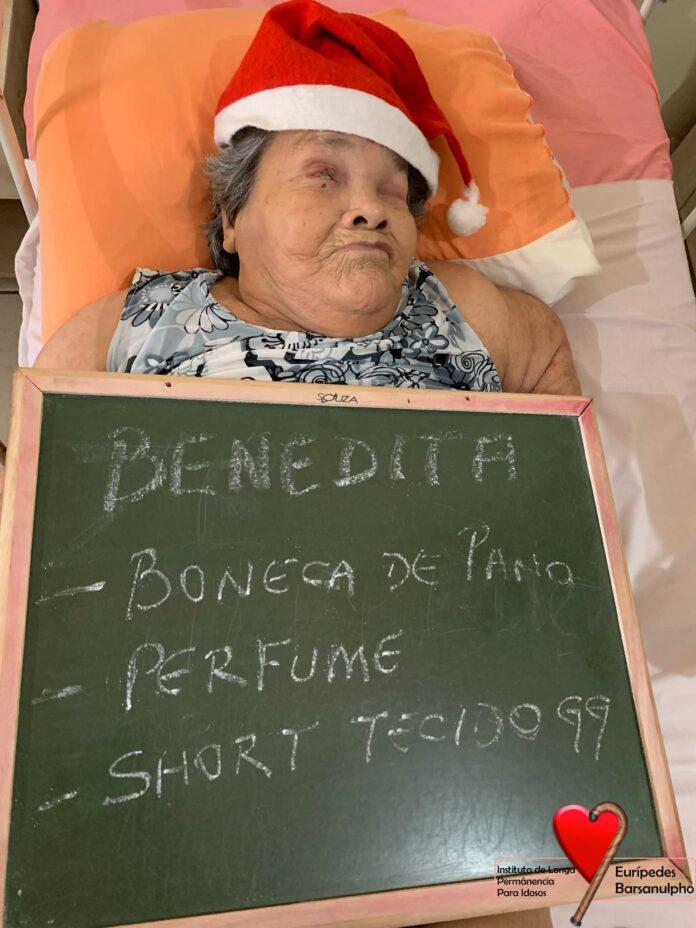 SOUZA
BENEDITA
- BONECA DE PANO
- PERFUME
- SHORT TECIDO GG
Instituto de Longa
Permânencia
Para Idosos
Eurípedes
Barsanulpho